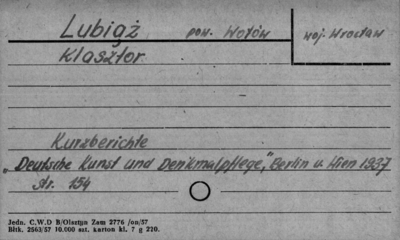 Lubiąż pow. Wołów woj. Wrocław
Klasztor
Kurzberichte
„Deutsche Kunst und Denkmalpflege", Berlin u. Wien 1937
str. 154
Jedn. C.W.D B/Olsztyn Zam 2776 /on/57
Bltk. 2563/57 10.000 szt. karton kl. 7 g 220.